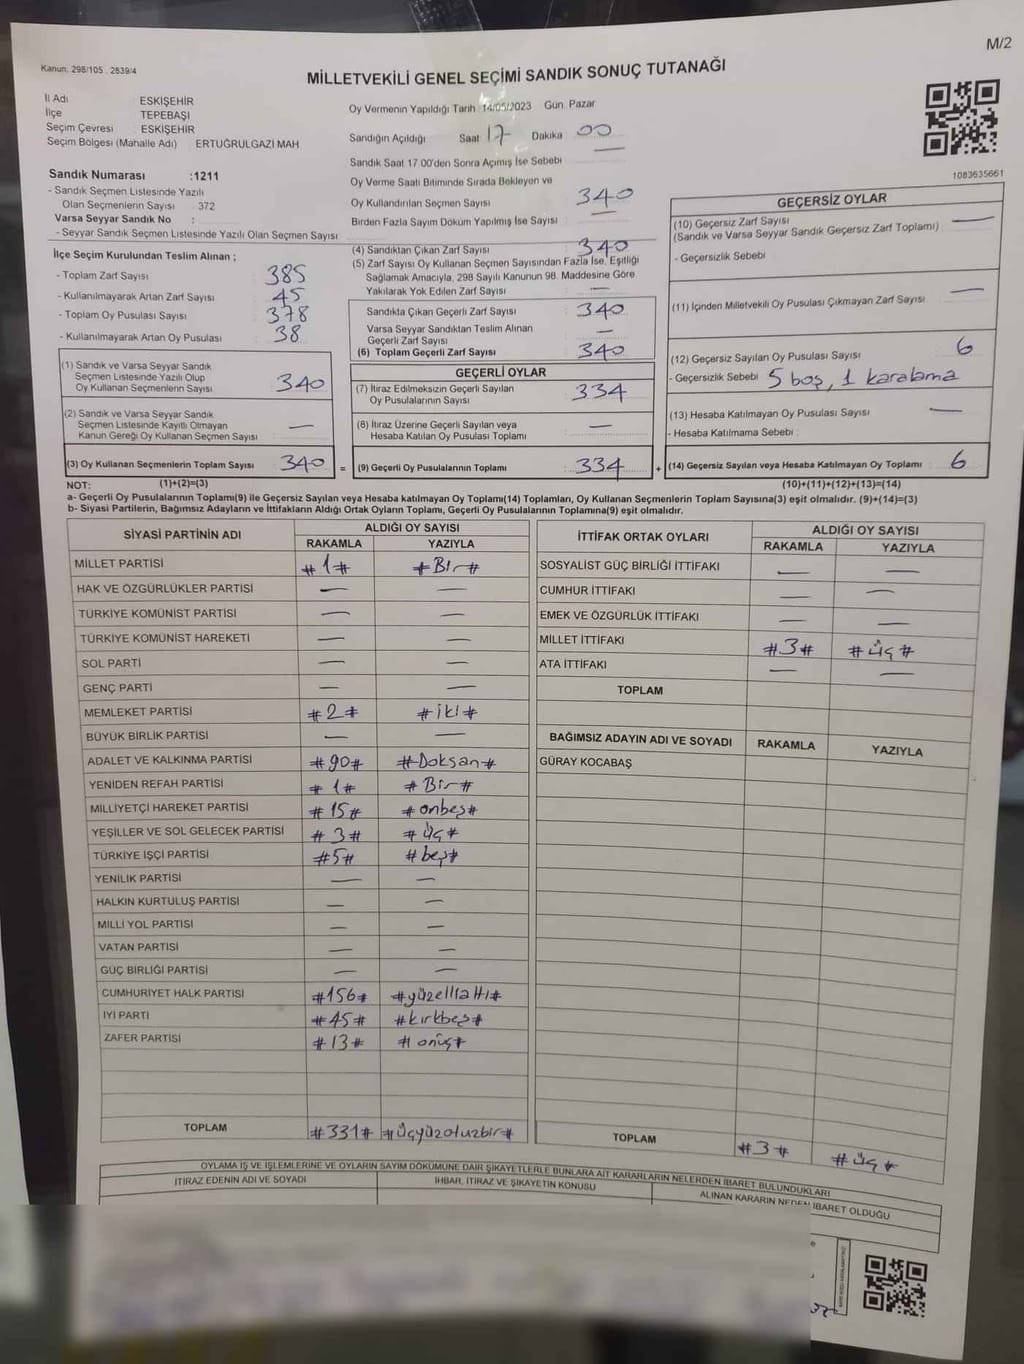 M/2
Kanun: 298/105 2839/4
MİLLETVEKİLİ GENEL SEÇİMİ SANDIK SONUÇ TUTANAĞI
İl Adı ESKİŞEHİR
İlçe TEPEBAŞI
Seçim Çevresi ESKİŞEHİR
Seçim Bölgesi (Mahalle Adı) ERTUĞRULGAZİ MAH
Sandık Numarası :1211
- Sandık Seçmen Listesinde Yazılı
Olan Seçmenlerin Sayısı 372
Varsa Seyyar Sandık No :
- Seyyar Sandık Seçmen Listesinde Yazılı Olan Seçmen Sayısı
İlçe Seçim Kurulundan Teslim Alınan ;
- Toplam Zarf Sayısı 385
- Kullanılmayarak Artan Zarf Sayısı 45
- Toplam Oy Pusulası Sayısı 378
- Kullanılmayarak Artan Oy Pusulası 38
(1) Sandık ve Varsa Seyyar Sandık
Seçmen Listesinde Yazılı Olup
Oy Kullanan Seçmenlerin Sayısı 340
(2) Sandık ve Varsa Seyyar Sandık
Seçmen Listesinde Kayıtlı Olmayan
Kanun Gereği Oy Kullanan Seçmen Sayısı —
(3) Oy Kullanan Seçmenlerin Toplam Sayısı 340 =
Oy Vermenin Yapıldığı Tarih 14/05/2023 Gün Pazar
Sandığın Açıldığı Saat 17 Dakika 00
Sandık Saat 17 00'den Sonra Açılmış İse Sebebi
Oy Verme Saati Bitiminde Sırada Bekleyen ve
Oy Kullandırılan Seçmen Sayısı 340
Birden Fazla Sayım Döküm Yapılmış İse Sayısı
(4) Sandıktan Çıkan Zarf Sayısı 340
(5) Zarf Sayısı Oy Kullanan Seçmen Sayısından Fazla İse, Eşitliği
Sağlamak Amacıyla, 298 Sayılı Kanunun 98. Maddesine Göre
Yakılarak Yok Edilen Zarf Sayısı —
Sandıkta Çıkan Geçerli Zarf Sayısı 340
Varsa Seyyar Sandıktan Teslim Alınan
Geçerli Zarf Sayısı —
(6) Toplam Geçerli Zarf Sayısı 340
GEÇERLİ OYLAR
(7) İtiraz Edilmeksizin Geçerli Sayılan
Oy Pusulalarının Sayısı 334
(8) İtiraz Üzerine Geçerli Sayılan veya
Hesaba Katılan Oy Pusulası Toplamı —
(9) Geçerli Oy Pusulalarının Toplamı : 334 +
1083635661
GEÇERSİZ OYLAR
(10) Geçersiz Zarf Sayısı —
(Sandık ve Varsa Seyyar Sandık Geçersiz Zarf Toplamı)
- Geçersizlik Sebebi
(11) İçinden Milletvekili Oy Pusulası Çıkmayan Zarf Sayısı —
(12) Geçersiz Sayılan Oy Pusulası Sayısı 6
- Geçersizlik Sebebi 5 boş, 1 karalama
(13) Hesaba Katılmayan Oy Pusulası Sayısı —
- Hesaba Katılmama Sebebi :
(14) Geçersiz Sayılan veya Hesaba Katılmayan Oy Toplamı 6
NOT: (1)+(2)=(3) (10)+(11)+(12)+(13)=(14)
a- Geçerli Oy Pusulalarının Toplamı(9) ile Geçersiz Sayılan veya Hesaba katılmayan Oy Toplamı(14) Toplamları, Oy Kullanan Seçmenlerin Toplam Sayısına(3) eşit olmalıdır. (9)+(14)=(3)
b- Siyasi Partilerin, Bağımsız Adayların ve İttifakların Aldığı Oyların Toplamı, Geçerli Oy Pusulalarının Toplamına(9) eşit olmalıdır.
SİYASİ PARTİNİN ADI ALDIĞI OY SAYISI
RAKAMLA YAZIYLA
MİLLET PARTİSİ #1# #Bir#
HAK VE ÖZGÜRLÜKLER PARTİSİ — —
TÜRKİYE KOMÜNİST PARTİSİ — —
TÜRKİYE KOMÜNİST HAREKETİ — —
SOL PARTİ — —
GENÇ PARTİ — —
MEMLEKET PARTİSİ #2# #iki#
BÜYÜK BİRLİK PARTİSİ — —
ADALET VE KALKINMA PARTİSİ #90# #Doksan#
YENİDEN REFAH PARTİSİ #1# #Bir#
MİLLİYETÇİ HAREKET PARTİSİ #15# #onbeş#
YEŞİLLER VE SOL GELECEK PARTİSİ #3# #üç#
TÜRKİYE İŞÇİ PARTİSİ #5# #beş#
YENİLİK PARTİSİ — —
HALKIN KURTULUŞ PARTİSİ — —
MİLLİ YOL PARTİSİ — —
VATAN PARTİSİ — —
GÜÇ BİRLİĞİ PARTİSİ — —
CUMHURİYET HALK PARTİSİ #156# #yüzellialtı#
İYİ PARTİ #45# #kırkbeş#
ZAFER PARTİSİ #13# #onüç#
TOPLAM #331# #üçyüzotuzbir#
İTTİFAK ORTAK OYLARI ALDIĞI OY SAYISI
RAKAMLA YAZIYLA
SOSYALİST GÜÇ BİRLİĞİ İTTİFAKI — —
CUMHUR İTTİFAKI — —
EMEK VE ÖZGÜRLÜK İTTİFAKI — —
MİLLET İTTİFAKI #3# #üç#
ATA İTTİFAKI — —
TOPLAM
BAĞIMSIZ ADAYIN ADI VE SOYADI RAKAMLA YAZIYLA
GÜRAY KOCABAŞ
TOPLAM #3# #üç#
OYLAMA İŞ VE İŞLEMLERİNE VE OYLARIN SAYIM DÖKÜMÜNE DAİR ŞİKAYETLERLE BUNLARA AİT KARARLARIN NELERDEN İBARET BULUNDUKLARI
İTİRAZ EDENİN ADI VE SOYADI İHBAR, İTİRAZ VE ŞİKAYETİN KONUSU ALINAN KARARIN NEDEN İBARET OLDUĞU